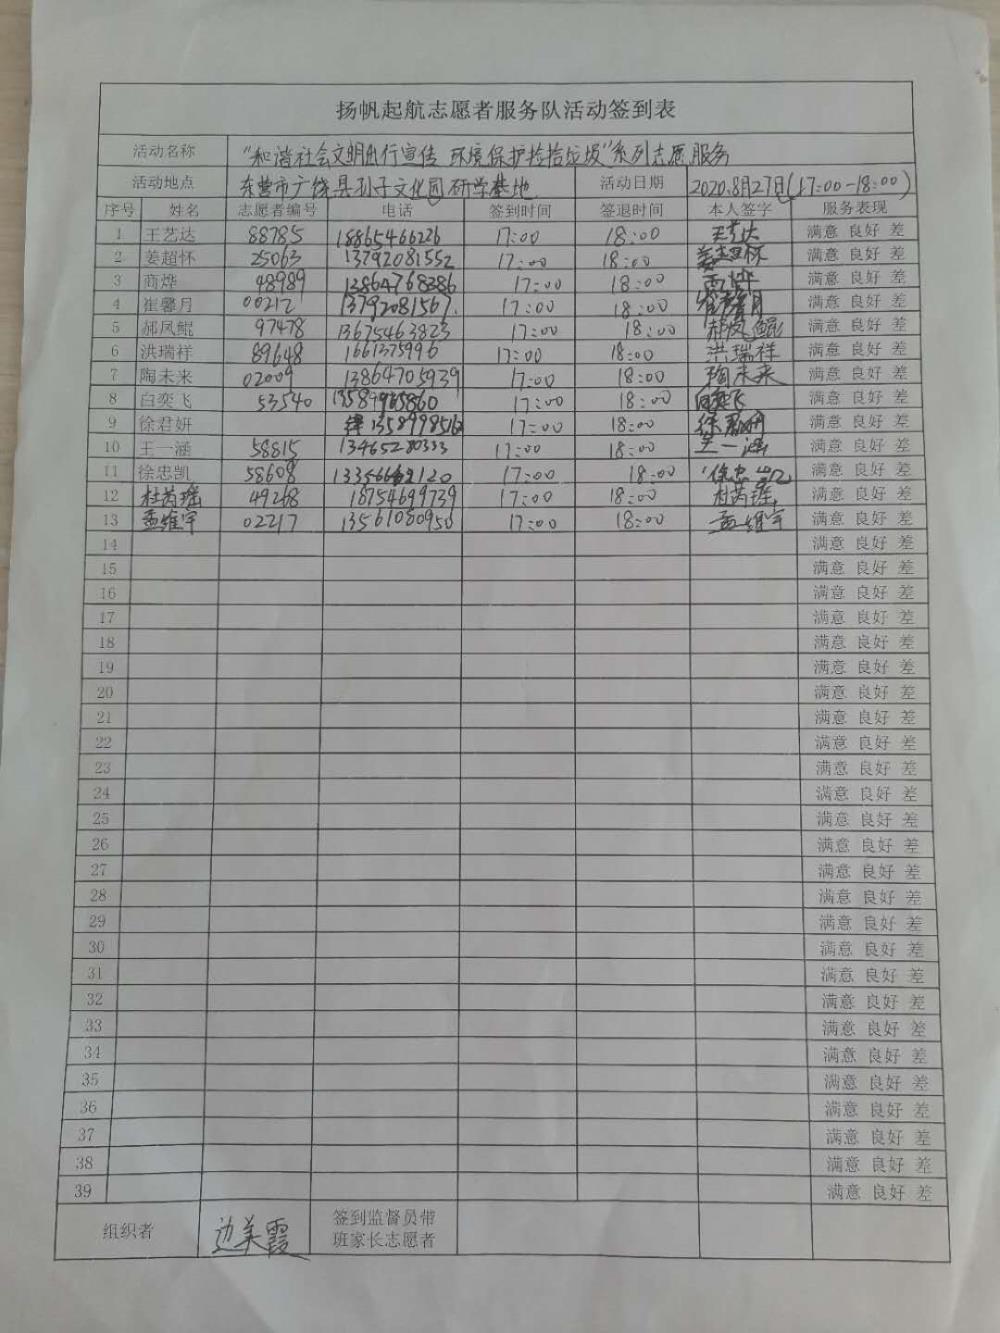 扬帆起航志愿者服务队活动签到表
活动名称 "和谐社会文明出行宣传 环境保护捡拾垃圾"系列志愿服务
活动地点 东营市广饶县孙子文化园研学基地 活动日期 2020.8月27日(17:00-18:00)
序号 姓名 志愿者编号 电话 签到时间 签退时间 本人签字 服务表现
1 王艺达 88785 18865466226 17:00 18:00 王艺达 满意 良好 差
2 姜超怀 25063 13792081552 17:00 18:00 姜超怀 满意 良好 差
3 商烨 48989 13864768386 17:00 18:00 商烨 满意 良好 差
4 崔馨月 00212 13792081567 17:00 18:00 崔馨月 满意 良好 差
5 郝凤鲲 97478 13675463823 17:00 18:00 郝凤鲲 满意 良好 差
6 洪瑞祥 89648 1661375996 17:00 18:00 洪瑞祥 满意 良好 差
7 陶未来 02009 13864705939 17:00 18:00 陶未来 满意 良好 差
8 白奕飞 53540 17:00 18:00 白奕飞 满意 良好 差
9 徐君妍 17:00 18:00 徐君妍 满意 良好 差
10 王一涵 58815 13465280333 17:00 18:00 王一涵 满意 良好 差
11 徐忠凯 58608 17:00 18:00 徐忠凯 满意 良好 差
12 杜芮瑶 49268 18754699739 17:00 18:00 杜芮瑶 满意 良好 差
13 孟维宇 02217 13561080950 17:00 18:00 孟维宇 满意 良好 差
14 满意 良好 差
15 满意 良好 差
16 满意 良好 差
17 满意 良好 差
18 满意 良好 差
19 满意 良好 差
20 满意 良好 差
21 满意 良好 差
22 满意 良好 差
23 满意 良好 差
24 满意 良好 差
25 满意 良好 差
26 满意 良好 差
27 满意 良好 差
28 满意 良好 差
29 满意 良好 差
30 满意 良好 差
31 满意 良好 差
32 满意 良好 差
33 满意 良好 差
34 满意 良好 差
35 满意 良好 差
36 满意 良好 差
37 满意 良好 差
38 满意 良好 差
39 满意 良好 差
组织者 边美霞 签到监督员带
班家长志愿者